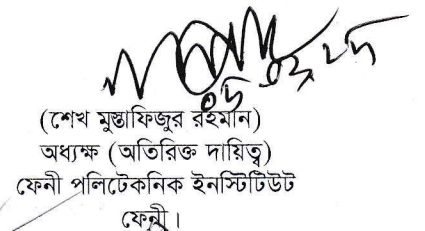 (শেখ মুস্তাফিজুর রহমান)
অধ্যক্ষ (অতিরিক্ত দায়িত্ব)
ফেনী পলিটেকনিক ইনস্টিটিউট
ফেনী।